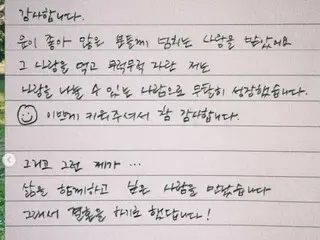 감사합니다.
운이 좋아 많은 분들께 넘치는 사랑을 받았어요
그 사랑을 먹고 무럭무럭 자란 저는
사랑을 나눌 수 있는 사람으로 무탈히 성장했습니다.
이쁘게 키워주셔서 참 감사합니다.
그리고 그런 제가 ...
삶을 함께하고 싶은 사람을 만났습니다
그래서 결혼을 하기로 했답니다!